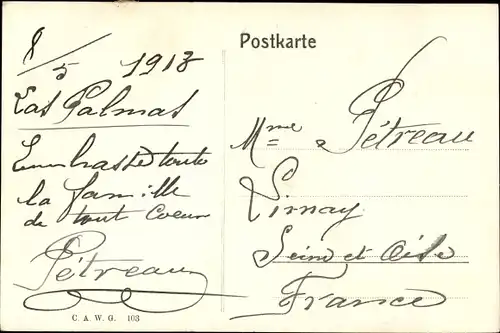 8/5 1913
Las Palmas
Embrasse toute
la famille
de tout Coeur
Pétreau
C. A. W. G. 103
Postkarte
Mme Pétreau
Limay
Seine et Oise
France